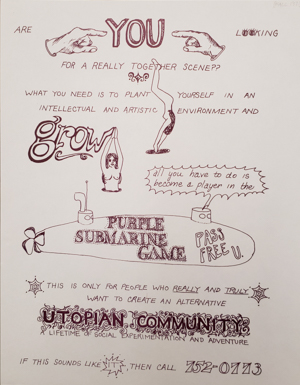 ARE YOU LOOKING
FOR A REALLY TOGETHER SCENE??
WHAT YOU NEED IS TO PLANT YOURSELF IN AN
INTELLECTUAL AND ARTISTIC ENVIRONMENT AND
grow
all you have to do is
become a player in the
PURPLE
SUBMARINE
GAME
PASS
FREE U.
THIS IS ONLY FOR PEOPLE WHO REALLY AND TRULY
WANT TO CREATE AN ALTERNATIVE
UTOPIAN COMMUNITY:
A LIFETIME OF SOCIAL EXPERIMENTATION AND ADVENTURE.
IF THIS SOUNDS LIKE IT, THEN CALL 752-0773